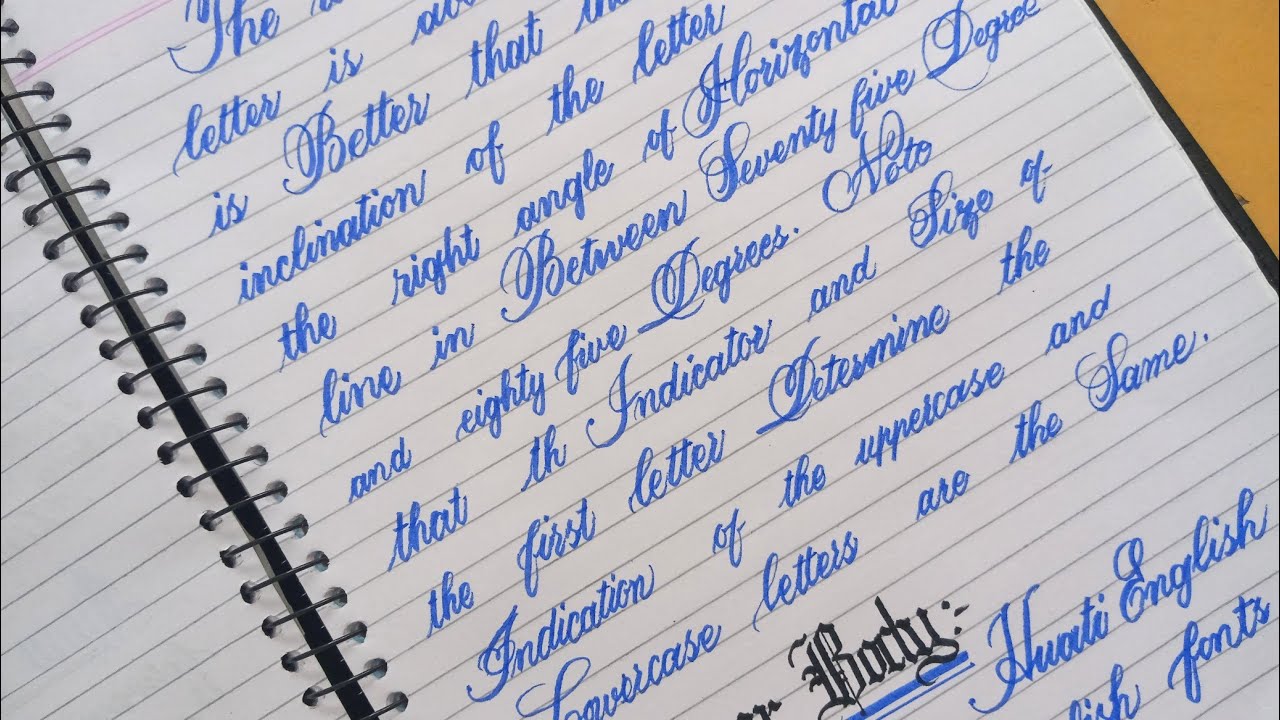 The
letter is
is Better that
inclination of the letter
the right angle of Horizontal
line in Between Seventy five Degree
and eighty five Degrees. Note
that th Indicator and Size of
the first letter Determine the
Indication of the uppercase and
Lowercase letters are the Same.
Body:-
Huati English
fonts